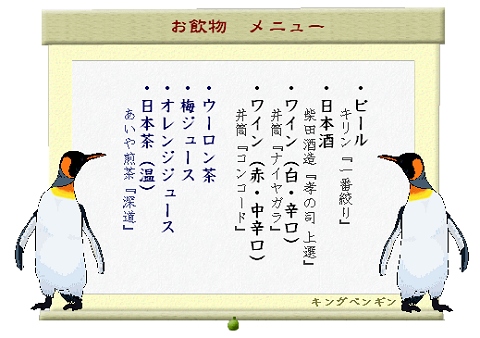 お飲物　メニュー
・ビール
キリン『一番絞り』
・日本酒
柴田酒造『孝の司 上選』
・ワイン（白・辛口）
井筒『ナイヤガラ』
・ワイン（赤・中辛口）
井筒『コンコード』
・ウーロン茶
・梅ジュース
・オレンジジュース
・日本茶（温）
あいや煎茶『深道』
キングペンギン